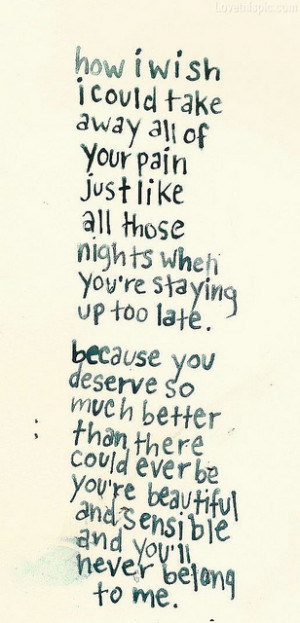 LoveThisPic.com
how i wish
i could take
away all of
your pain
just like
all those
nights when
you're staying
up too late.
because you
deserve so
much better
than there
could ever be
you're beautiful
and sensible
and you'll
never belong
to me.